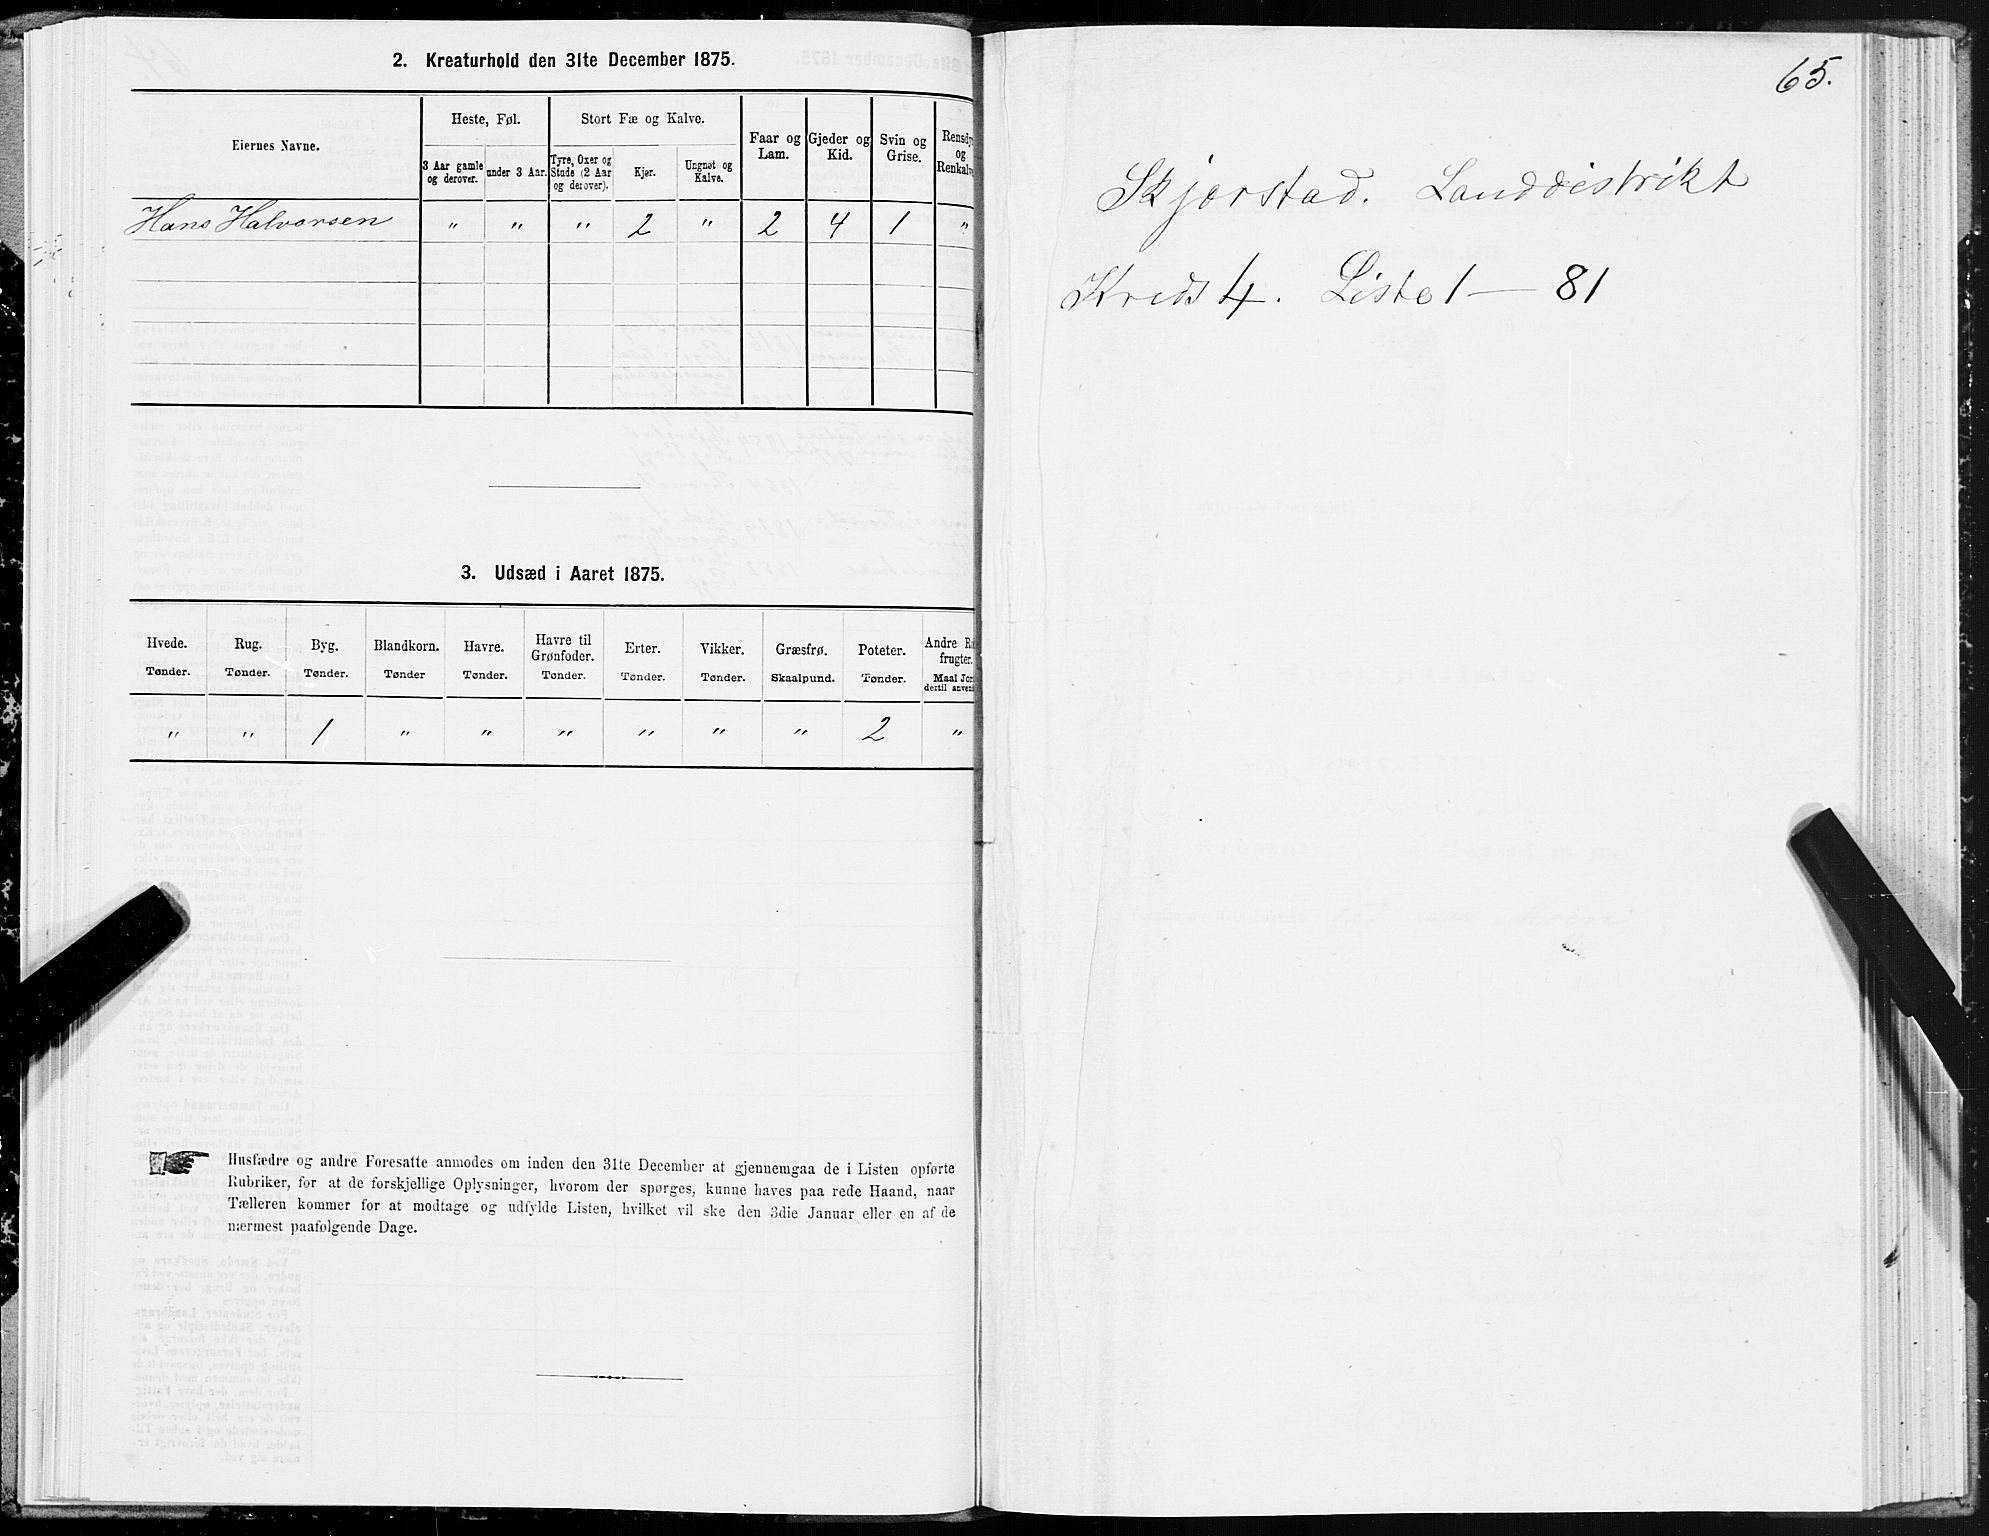 2. Kreaturhold den 31te December 1875.
Eiernes Navne.
Heste, Føl.
Stort Fæ og Kalve.
Faar og Lam.
Gjeder og Kid.
Svin og Grise.
Rensdyr og Renkalve
3 Aar gamle og derover.
under 3 Aar.
Tyre, Oxer og Stude (2 Aar og derover).
Kjør.
Ungnøt og Kalve.
Hans Halvorsen " " " 2 " 2 4 1 "
3. Udsæd i Aaret 1875.
Hvede. Rug. Byg. Blandkorn. Havre. Havre til Grønfoder. Erter. Vikker. Græsfrø. Poteter. Andre
frugter.
Tønder. Tønder. Tønder. Tønder Tønder. Tønder. Tønder. Tønder. Skaalpund. Tønder. Maal Jor
dertil anven
" " 1 " " " " " " 2 "
Husfædre og andre Foresatte anmodes om inden den 31te December at gjennemgaa de i Listen opførte
Rubriker, for at de forskjellige Oplysninger, hvorom der spørges, kunne haves paa rede Haand, naar
Tælleren kommer for at modtage og udfylde Listen, hvilket vil ske den 3die Januar eller en af de
nærmest paafølgende Dage.
65.
Skjerstad. Landdistrikt
Kreds 4. Liste 1 — 81